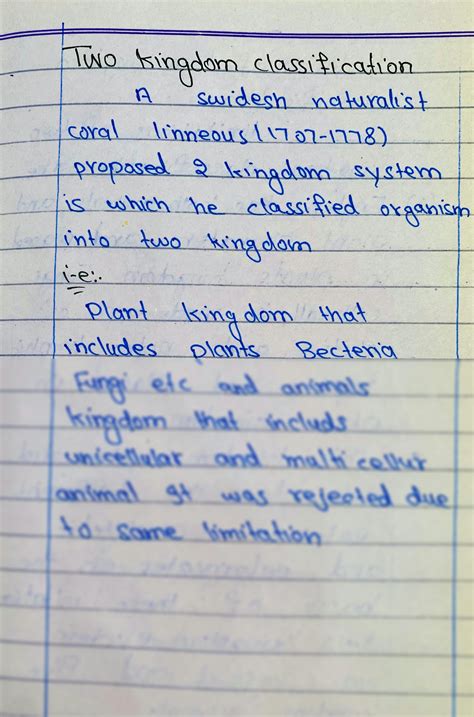 Two kingdom classification
A swidesh naturalist
coral linneous (1707-1778)
proposed 2 kingdom system
is which he classified organism
into two kingdom
i-e:-
Plant kingdom that
includes plants Becteria
Fungi etc and animals
kingdom that includs
unicellular and multi cellur
animal It was rejected due
to some limitation